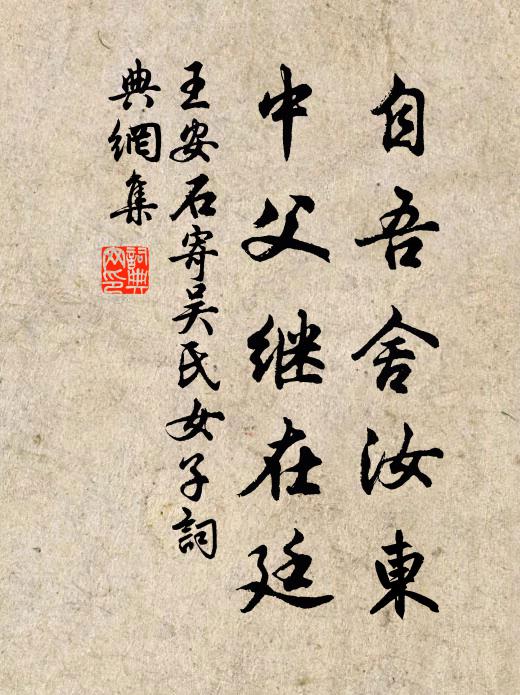 自吾舍汝東
中父继在廷
王安石寄吴氏女子詞
典網集
詞典網印